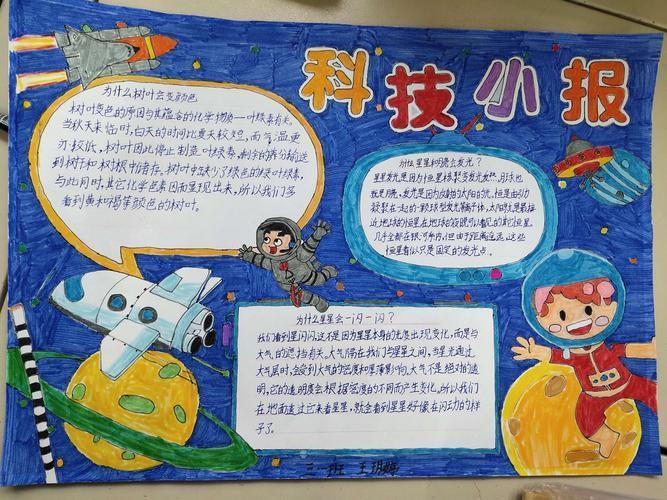 科技小报
为什么树叶会变颜色
树叶变色的原因与其蕴含的化学物质—叶绿素有关。
当秋天来临时,白天的时间比夏天较短,而气温更
为较低,树叶因此停止制造叶绿素,剩余的养分输送
到树干和树根中储存。树叶中缺少了绿色的绿叶绿素,
与此同时,其它化学色素因而呈现出来,所以我们多
看到黄和褐等颜色的树叶。
为什么星星和月亮会发光?
星星发光是因为恒星核裂变发光发热,月球也
就是月亮,发光是因为反射的太阳的光,恒星由引力
凝聚在一起的一颗球型发光等离子体,太阳就是最接
近地球的恒星在地球的夜晚可以看见的其它恒星,
几乎全都在银河系内,但由于距离遥远,这些
恒星看似只是固定的发光点。
为什么星星会一闪一闪?
我们看到星闪闪,这不是因为星星本身的光度出现变化,而是与
大气的遮挡有关。大气隔在我们与星星之间,当星光通过
大气层时,会受到大气的密度和厚薄影响。大气不是绝对的透
明,它的透明度会根据密度的不同而产生变化。所以我们
在地面透过它来看星星,就会看到星星好像在闪动的样
子了。
三一班 王玥